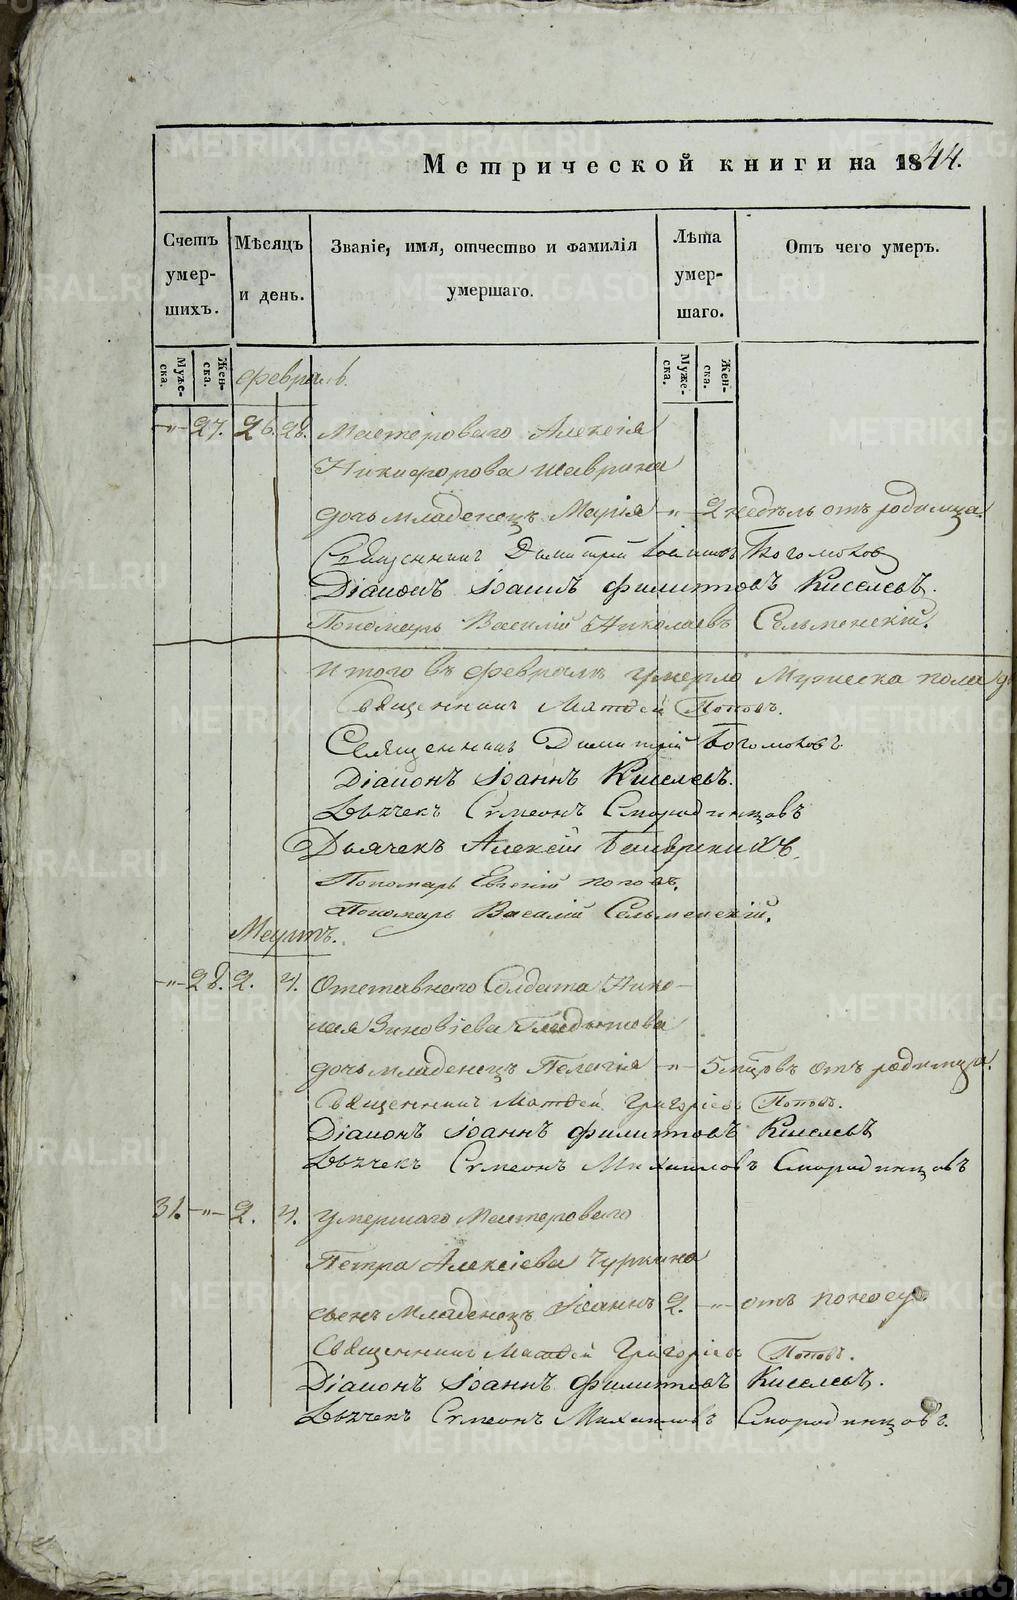 Метрической книги на 1844.
Счетъ умершихъ.
Мѣсяцъ и день.
Званіе, имя, отчество и фамилія умершаго.
Лѣта умершаго.
Отъ чего умеръ.
Мужеска. Женска.
Мужеска. Женска.
Февраль.
-"- 27. 26. 28. Мастероваго Алексія
Никифорова Шаврина
дочь младенецъ Марія -"- 2 недѣль отъ родимца.
Священникъ Димитрій Богомоловъ
Діаконъ Іоаннъ Филипповъ Киселевъ.
Пономарь Василій Николаевъ Сельменскій.
Итого въ Февралѣ умерло Мужеска пола
Священникъ Матѳей Поповъ.
Священникъ Димитрій Богомоловъ
Діаконъ Іоаннъ Киселевъ.
Дьячекъ Сѵмеонъ Смородинцовъ
Дьячекъ Алексій
Пономарь Евгеній Поповъ.
Пономарь Василій Сельменскій.
Мартъ.
-"- 28. 2. 4. Отставнаго Солдата Нико-
лая Зиновіева
дочь младенецъ Пелагія -"- 5 мцовъ отъ родимца.
Священникъ Матѳей Григоріевъ Поповъ.
Діаконъ Іоаннъ Филипповъ Киселевъ
Дьячекъ Сѵмеонъ Михаиловъ Смородинцовъ
31. -"- 2. 4. Умершаго Мастероваго
Петра Алексіева Чуркина
сынъ Младенецъ Іоаннъ 2. -"- отъ поносу
Священникъ Матѳей Григоріевъ Поповъ.
Діаконъ Іоаннъ Филипповъ Киселевъ.
Дьячекъ Сѵмеонъ Михаиловъ Смородинцовъ.
METRIKI.GASO-URAL.RU